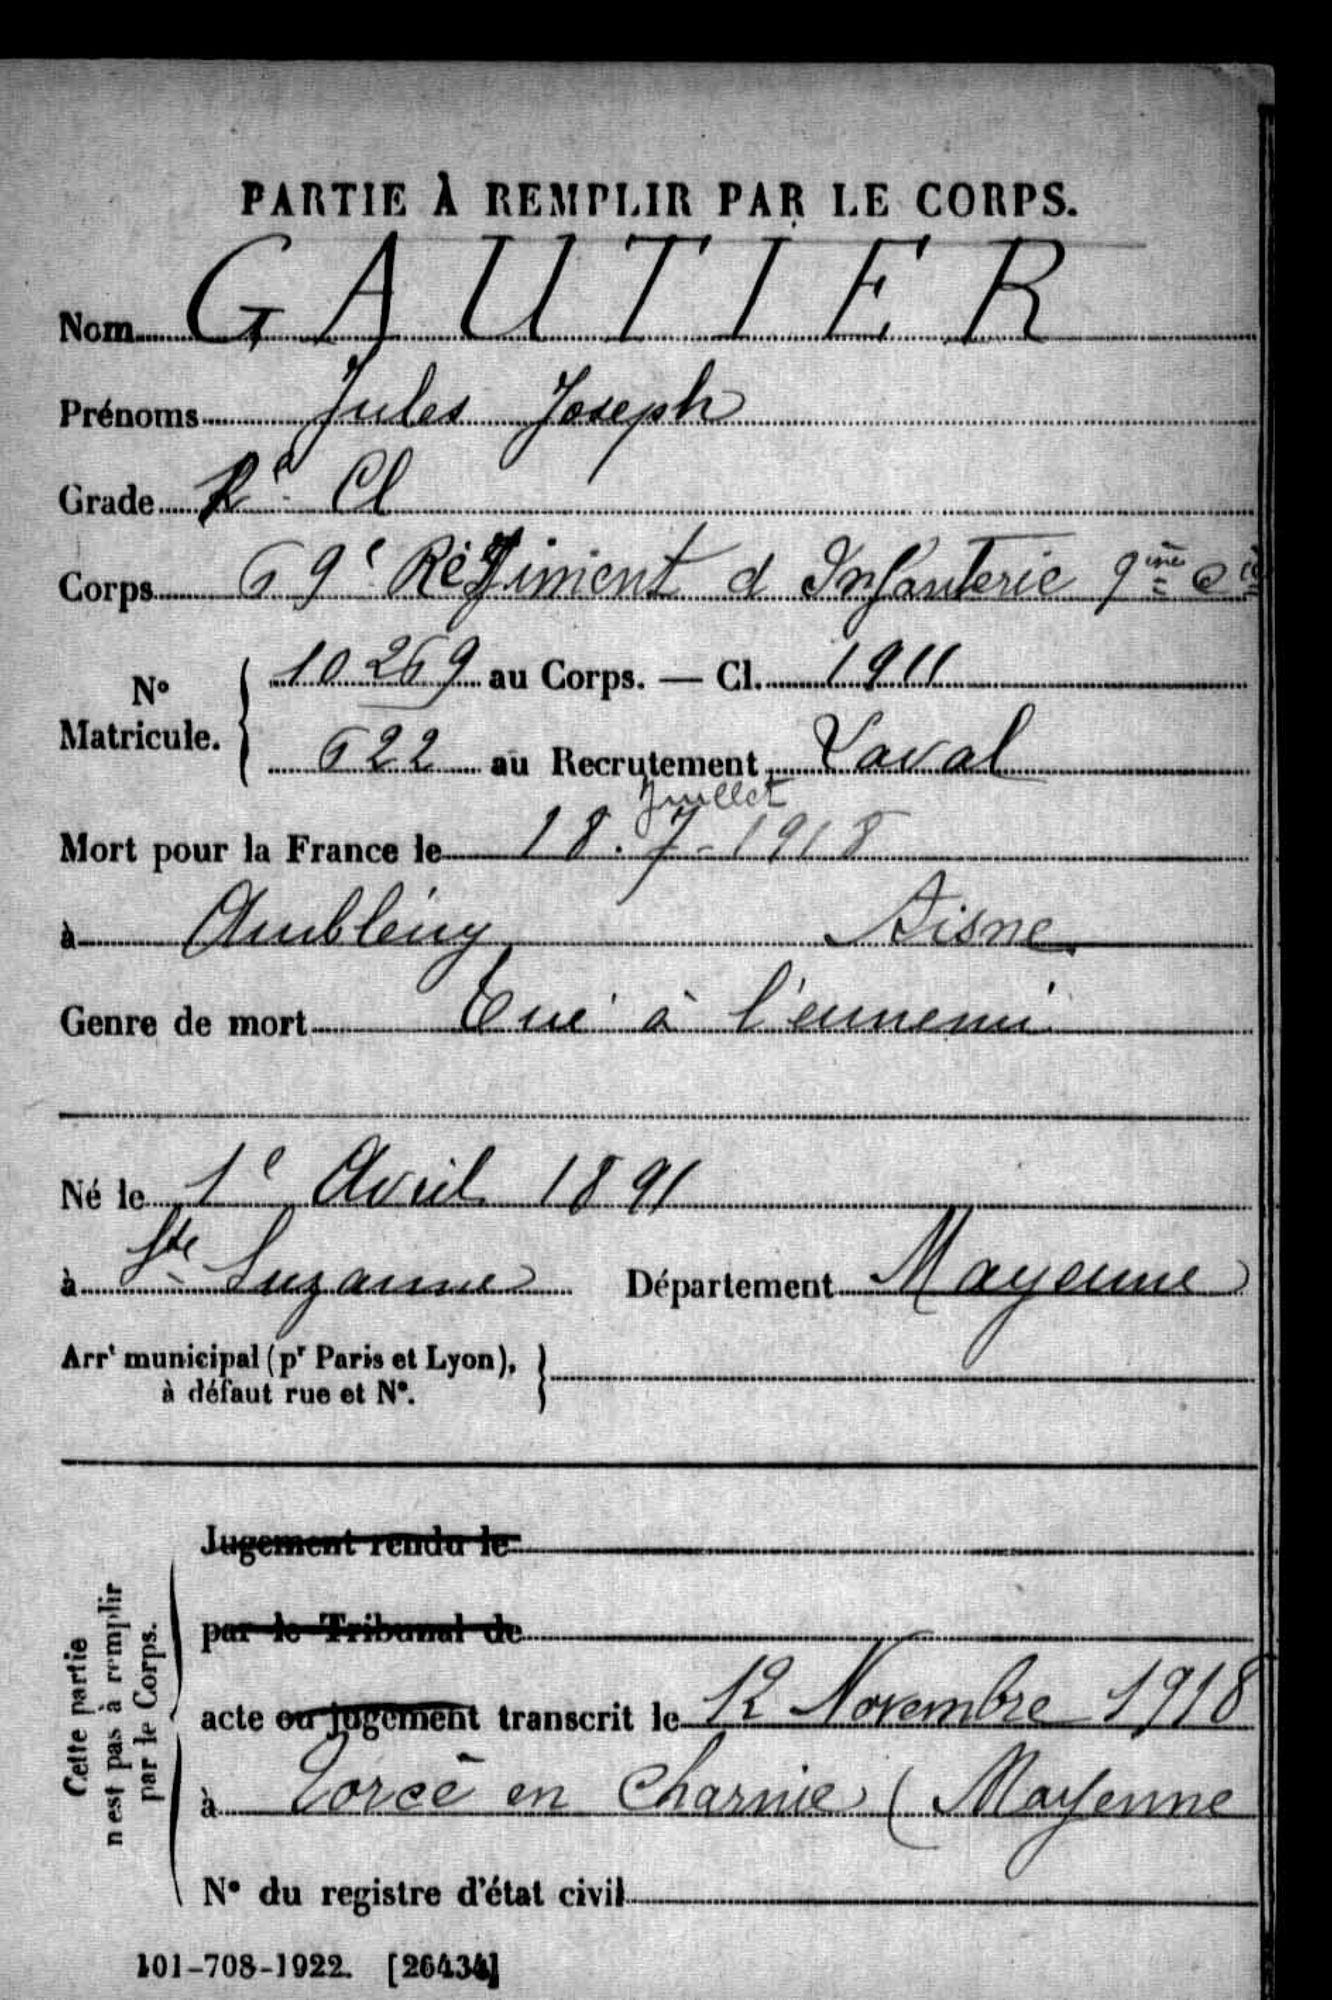 PARTIE À REMPLIR PAR LE CORPS.
Nom GAUTIER
Prénoms Jules Joseph
Grade 2e Cl
Corps 69e Régiment d Infanterie 9ème Cie
No Matricule. 10269 au Corps. — Cl. 1911
622 au Recrutement Laval
Juillet
Mort pour la France le 18.7-1918
à Ambleny Aisne
Genre de mort Tué à l'ennemi
Né le 1e Avril 1891
à Ste Suzanne Département Mayenne
Arrt municipal (pr Paris et Lyon),
à défaut rue et No.
Jugement rendu le
par le Tribunal de
acte ou jugement transcrit le 12 Novembre 1918
à Torcé en Charnie (Mayenne
No du registre d'état civil
Cette partie
n'est pas à remplir
par le Corps.
101-708-1922. [26434]